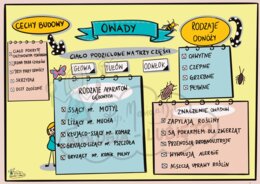 CECHY BUDOWY
OWADY
RODZAJE
ODNÓŻY
CIAŁO PODZIELONE NA TRZY CZĘŚCI
GŁOWA
TUŁÓW
ODWŁOK
CIAŁO POKRYTE
JEDNA PARA CZUŁKÓW
TRZY PARY ODNÓŻY
SKRZYDŁA
OCZY ZŁOŻONE
RODZAJE APARATÓW
GĘBOWYCH
SSĄCY NP. MOTYL
LIŻĄCY NP. MUCHA
KŁUJĄCO-SSĄCY NP. KOMAR
GRYZĄCO-LIŻĄCY NP. PSZCZOŁA
GRYZĄCY NP. KONIK POLNY
CHWYTNE
CZEPNE
GRZEBNE
PŁYWNE
ZNACZENIE OWADÓW
ZAPYLAJĄ ROŚLINY
SĄ POKARMEM DLA ZWIERZĄT
PRZENOSZĄ DROBNOUSTROJE
WYWOŁUJĄ ALERGIE
NISZCZĄ UPRAWY ROŚLIN